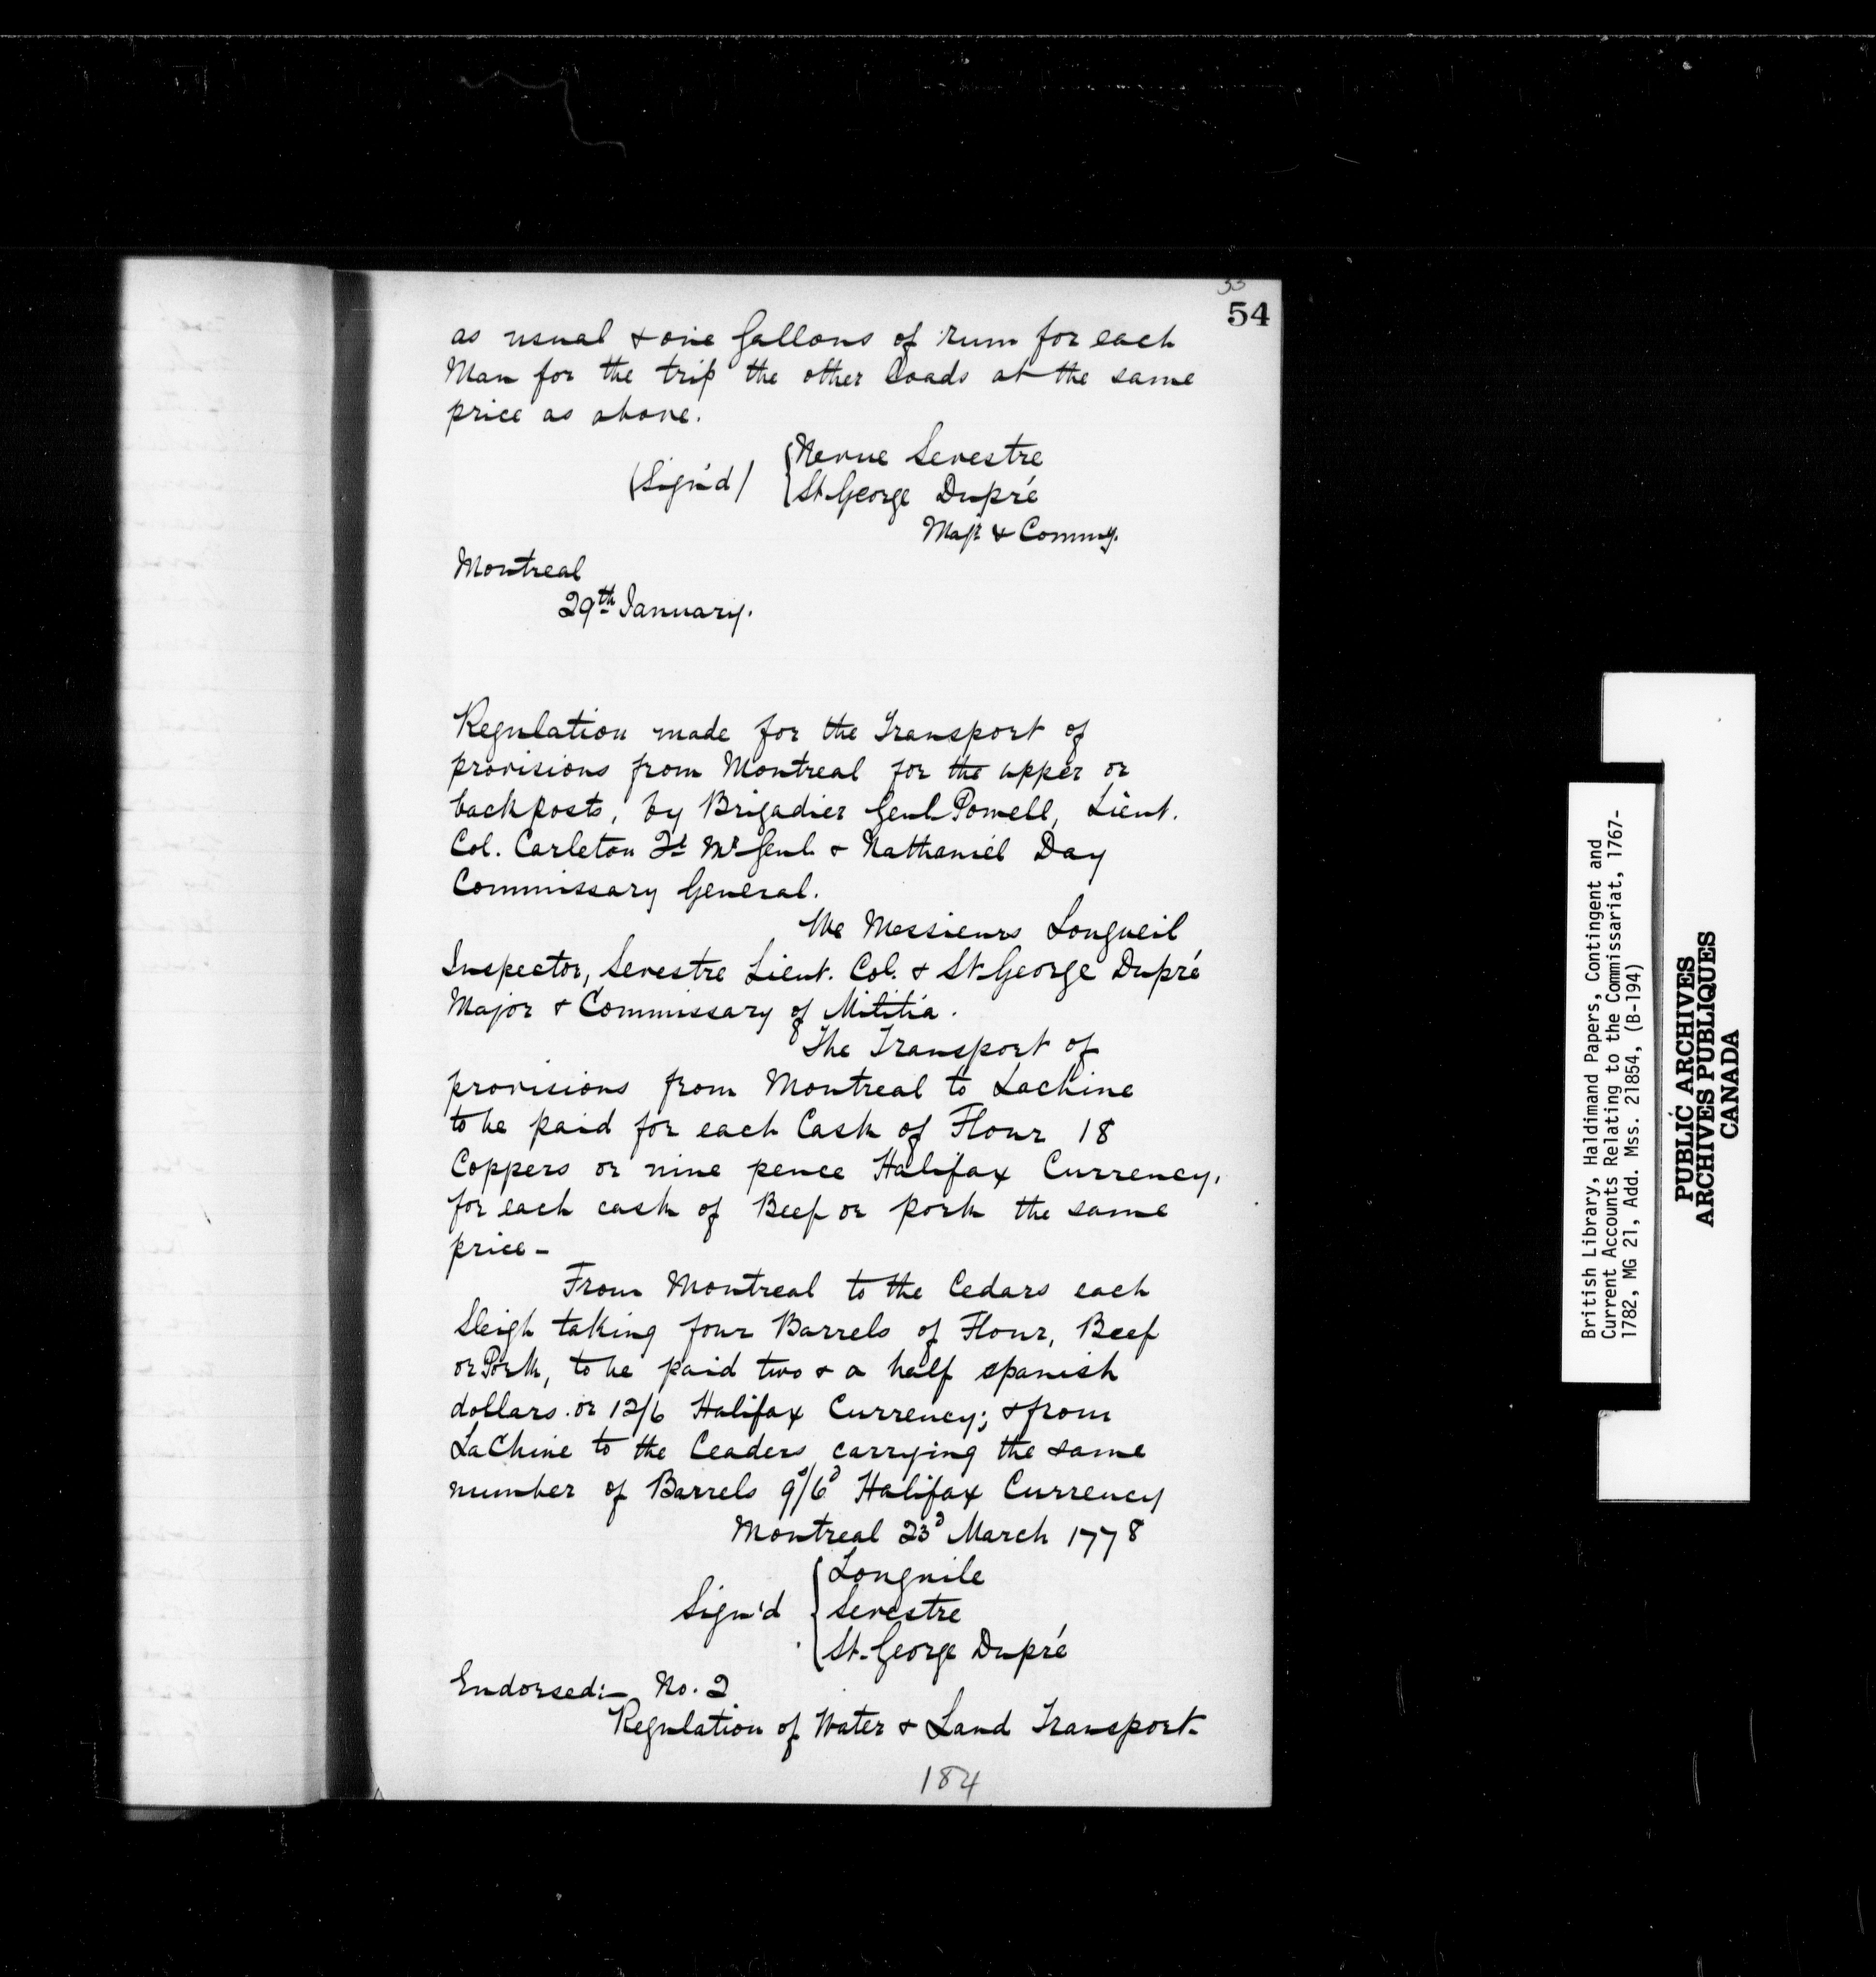 33
54
as usual & one Gallons of rum for each
Man for the trip the other Loads at the same
price as above.
(Sign'd) Nevue Sevestre
St. George Dupré
Majr & Commy.
Montreal
29th January.
Regulation made for the Transport of
provisions from Montreal for the upper or
back posts, by Brigadier Genl Powell, Lieut.
Col. Carleton Qr Mr Genl & Nathaniel Day
Commissary General.
We Messieurs Longueil
Inspector, Sevestre Lieut. Col. & St George Dupré
Major & Commissary of Militia.
The Transport of
provisions from Montreal to Lachine
to be paid for each Cask of Flour 18
Coppers or nine pence Halifax Currency.
for each cask of Beef or pork the same
price -
From Montreal to the Cedars each
Sleigh taking four Barrels of Flour, Beef
or Pork, to be paid two & a half spanish
dollars or 12/6 Halifax Currency; & from
LaChine to the Ceaders carrying the same
number of Barrels 9s/6d Halifax Currency
Montreal 23d March 1778
Sign'd Longuile
Sevestre
St. George Dupré
Endorsed:- No. 2
Regulation of Water & Land Transport-
184
British Library, Haldimand Papers, Contingent and
Current Accounts Relating to the Commissariat, 1767-
1782, MG 21, Add. Mss. 21854, (B-194)
PUBLIC ARCHIVES
ARCHIVES PUBLIQUES
CANADA